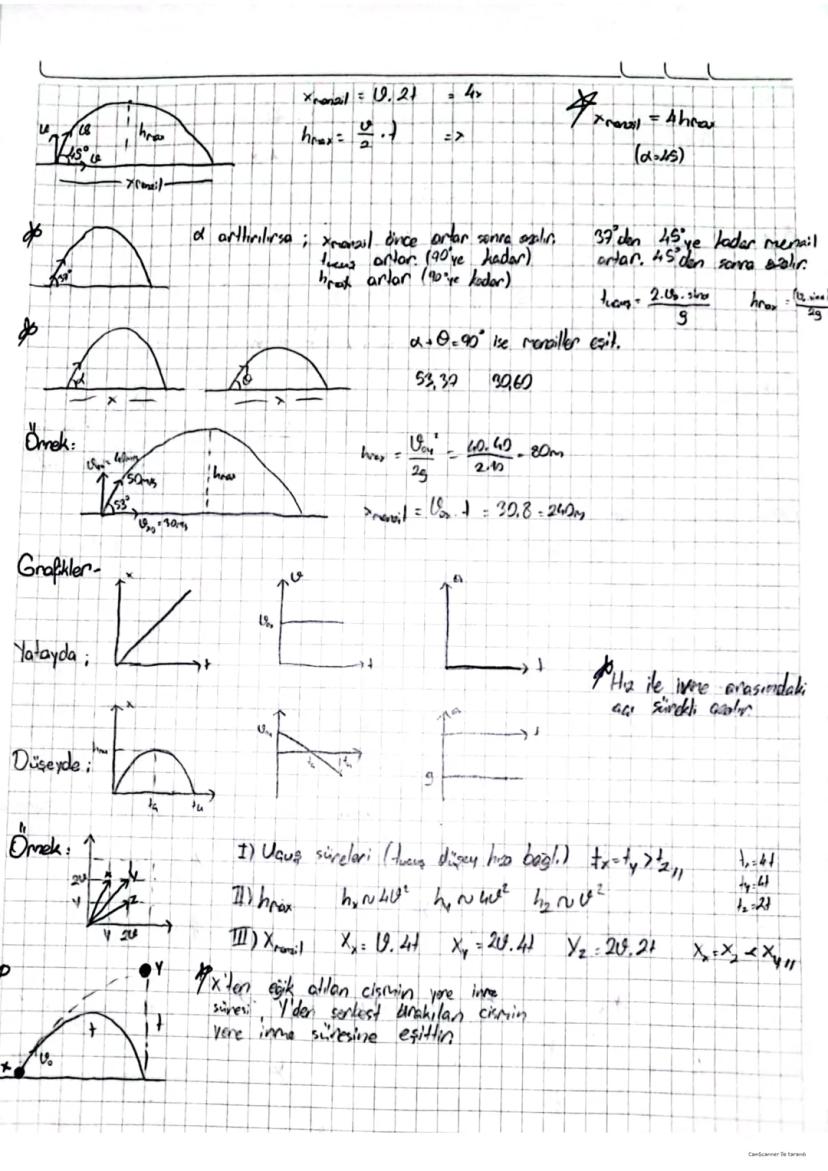 x_menzil = ϑ.2t = 4x
h_max = ϑ/2 . t => x
x_menzil = 4h_max
(α=45)
ϑ ϑ 45° ϑ h_max
x_menzil
37°
α arttırılırsa ; x_menzil önce artar sonra azalır.
t_uçuş artar. (90°ye kadar)
h_max artar (90°ye kadar)
37°den 45°ye kadar menzil
artar. 45°den sonra azalır.
t_uçuş = 2.ϑ₀.sinα / g
α θ
x x
α + θ = 90° ise menziller eşit.
53,37 30,60
Örnek:
50m/s
53°
h_max
h_max = ϑ₀y² / 2g = 40.40 / 2.10 = 80m
x_menzil = ϑ₀x . t = 30.8 = 240m
Grafikler-
Yatayda ;
x t
ϑ ϑ₀x t
a t
Hız ile ivme arasındaki
açı sürekli azalır.
Düşeyde ;
x h_max
ϑ₀y
a t g
Örnek:
2ϑ ϑ x y z ϑ 2ϑ
I) Uçuş süreleri (t_uçuş düşey hıza bağlı.) t_x = t_y > t_z //
t_x=4t
t_y=4t
t_z=2t
II) h_max h_x ~ 4ϑ² h_y ~ 4ϑ² h_z ~ ϑ²
III) X_menzil X_x = ϑ.4t X_y = 2ϑ.4t Y_z = 2ϑ.2t X_x = X_z < X_y //
Y
X ϑ₀ t t
X'ten eğik atılan cismin yere inme
süresi, Y'den serbest bırakılan cismin
yere inme süresine eşittir.
CamScanner ile tarandı